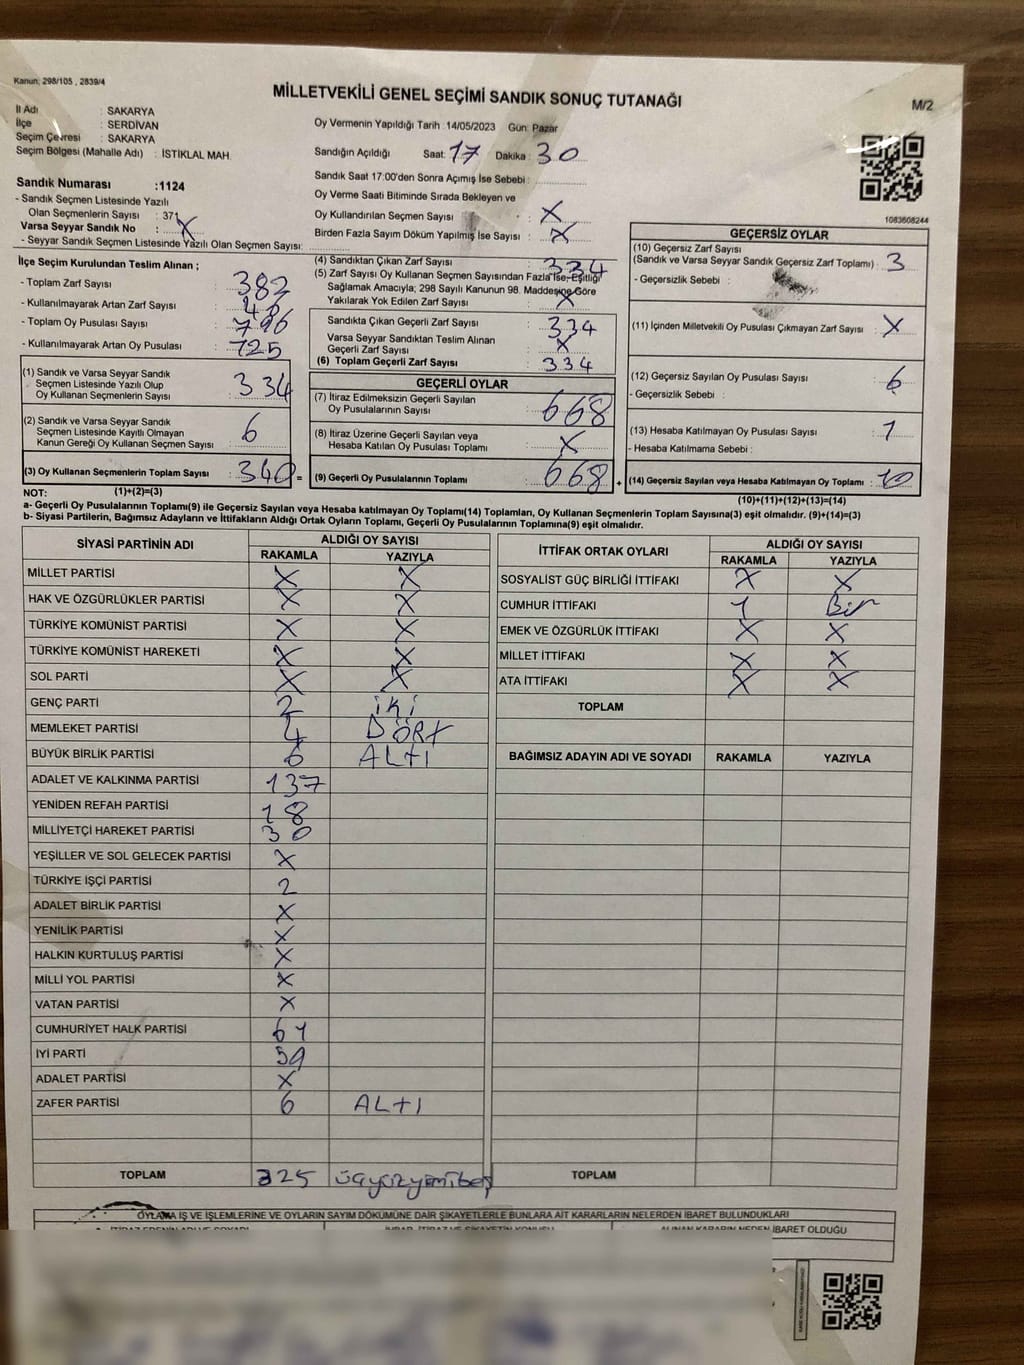 Kanun; 298/105 , 2839/4
MİLLETVEKİLİ GENEL SEÇİMİ SANDIK SONUÇ TUTANAĞI
M/2
İl Adı : SAKARYA
İlçe : SERDİVAN
Seçim Çevresi : SAKARYA
Seçim Bölgesi (Mahalle Adı) : İSTİKLAL MAH.
Oy Vermenin Yapıldığı Tarih :14/05/2023 Gün: Pazar
Sandığın Açıldığı Saat: 17 Dakika : 30
Sandık Saat 17:00'den Sonra Açımış İse Sebebi :
Oy Verme Saati Bitiminde Sırada Bekleyen ve
Oy Kullandırılan Seçmen Sayısı : X
Birden Fazla Sayım Döküm Yapılmış İse Sayısı : X
1083608244
Sandık Numarası :1124
- Sandık Seçmen Listesinde Yazılı
Olan Seçmenlerin Sayısı : 371
Varsa Seyyar Sandık No : X
- Seyyar Sandık Seçmen Listesinde Yazılı Olan Seçmen Sayısı:
İlçe Seçim Kurulundan Teslim Alınan ;
- Toplam Zarf Sayısı : 382
- Kullanılmayarak Artan Zarf Sayısı :
- Toplam Oy Pusulası Sayısı :
- Kullanılmayarak Artan Oy Pusulası : 725
(1) Sandık ve Varsa Seyyar Sandık
Seçmen Listesinde Yazılı Olup
Oy Kullanan Seçmenlerin Sayısı : 334
(2) Sandık ve Varsa Seyyar Sandık
Seçmen Listesinde Kayıtlı Olmayan
Kanun Gereği Oy Kullanan Seçmen Sayısı : 6
(3) Oy Kullanan Seçmenlerin Toplam Sayısı : 340 =
(4) Sandıktan Çıkan Zarf Sayısı : 334
(5) Zarf Sayısı Oy Kullanan Seçmen Sayısından Fazla İse, Eşitliği
Sağlamak Amacıyla; 298 Sayılı Kanunun 98. Maddesine Göre
Yakılarak Yok Edilen Zarf Sayısı : X
Sandıkta Çıkan Geçerli Zarf Sayısı : 334
Varsa Seyyar Sandıktan Teslim Alınan
Geçerli Zarf Sayısı : X
(6) Toplam Geçerli Zarf Sayısı : 334
GEÇERLİ OYLAR
(7) İtiraz Edilmeksizin Geçerli Sayılan
Oy Pusulalarının Sayısı : 668
(8) İtiraz Üzerine Geçerli Sayılan veya
Hesaba Katılan Oy Pusulası Toplamı : X
(9) Geçerli Oy Pusulalarının Toplamı : 668 +
GEÇERSİZ OYLAR
(10) Geçersiz Zarf Sayısı
(Sandık ve Varsa Seyyar Sandık Geçersiz Zarf Toplamı) : 3
- Geçersizlik Sebebi :
(11) İçinden Milletvekili Oy Pusulası Çıkmayan Zarf Sayısı : X
(12) Geçersiz Sayılan Oy Pusulası Sayısı : 6
- Geçersizlik Sebebi :
(13) Hesaba Katılmayan Oy Pusulası Sayısı : 1
- Hesaba Katılmama Sebebi :
(14) Geçersiz Sayılan veya Hesaba Katılmayan Oy Toplamı : 10
NOT: (1)+(2)=(3) (10)+(11)+(12)+(13)=(14)
a- Geçerli Oy Pusulasının Toplamı(9) ile Geçersiz Sayılan veya Hesaba katılmayan Oy Toplamı(14) Toplamları, Oy Kullanan Seçmenlerin Toplam Sayısına(3) eşit olmalıdır. (9)+(14)=(3)
b- Siyasi Partilerin, Bağımsız Adayların ve İttifakların Aldığı Ortak Oyların Toplamı, Geçerli Oy Pusulalarının Toplamına(9) eşit olmalıdır.
SİYASİ PARTİNİN ADI ALDIĞI OY SAYISI
RAKAMLA YAZIYLA
MİLLET PARTİSİ X X
HAK VE ÖZGÜRLÜKLER PARTİSİ X X
TÜRKİYE KOMÜNİST PARTİSİ X X
TÜRKİYE KOMÜNİST HAREKETİ X X
SOL PARTİ X X
GENÇ PARTİ 2 iki
MEMLEKET PARTİSİ 4 DÖRT
BÜYÜK BİRLİK PARTİSİ 6 ALTI
ADALET VE KALKINMA PARTİSİ 137
YENİDEN REFAH PARTİSİ 18
MİLLİYETÇİ HAREKET PARTİSİ 30
YEŞİLLER VE SOL GELECEK PARTİSİ X
TÜRKİYE İŞÇİ PARTİSİ 2
ADALET BİRLİK PARTİSİ X
YENİLİK PARTİSİ X
HALKIN KURTULUŞ PARTİSİ X
MİLLİ YOL PARTİSİ X
VATAN PARTİSİ X
CUMHURİYET HALK PARTİSİ 61
İYİ PARTİ 59
ADALET PARTİSİ X
ZAFER PARTİSİ 6 ALTI
TOPLAM 325 üçyüzyirmibeş
İTTİFAK ORTAK OYLARI ALDIĞI OY SAYISI
RAKAMLA YAZIYLA
SOSYALİST GÜÇ BİRLİĞİ İTTİFAKI X X
CUMHUR İTTİFAKI 1 Bir
EMEK VE ÖZGÜRLÜK İTTİFAKI X X
MİLLET İTTİFAKI X X
ATA İTTİFAKI X X
TOPLAM
BAĞIMSIZ ADAYIN ADI VE SOYADI RAKAMLA YAZIYLA
TOPLAM
OYLAMA İŞ VE İŞLEMLERİNE VE OYLARIN SAYIM DÖKÜMÜNE DAİR ŞİKAYETLERLE BUNLARA AİT KARARLARIN NELERDEN İBARET BULUNDUKLARI
İTİRAZ EDENİN ADI VE SOYADI İHBAR, İTİRAZ VE ŞİKAYETİN KONUSU ALINAN KARARIN NEDEN İBARET OLDUĞU